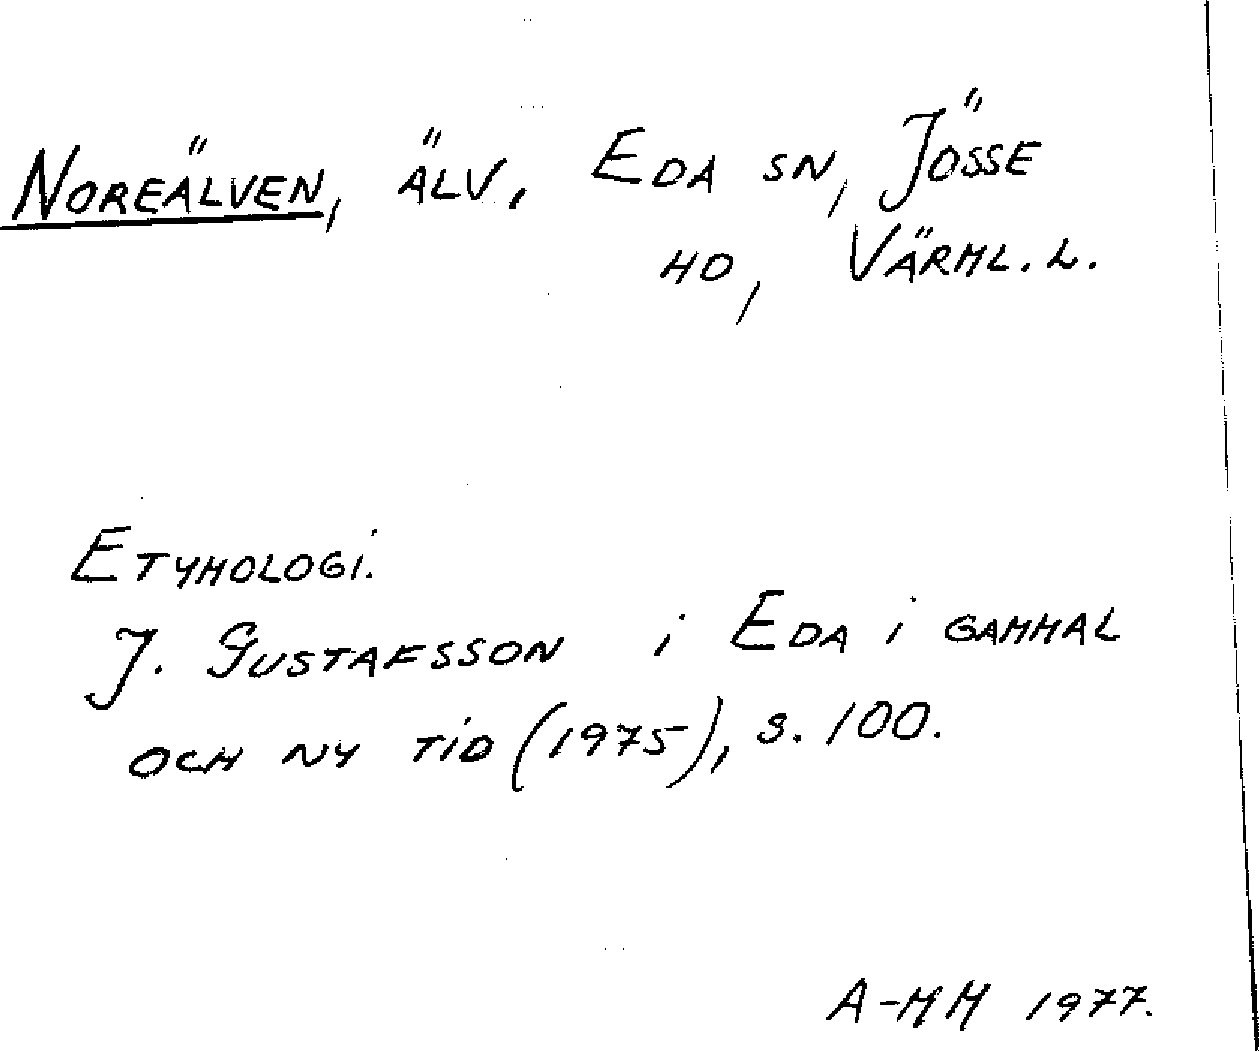 NOREÄLVEN, ÄLV, EDA SN, JÖSSE
HD, VÄRML. L.
ETYMOLOGI.
J. GUSTAFSSON i EDA i GAMMAL
OCH NY TID (1975), S. 100.
A-MM 1977.